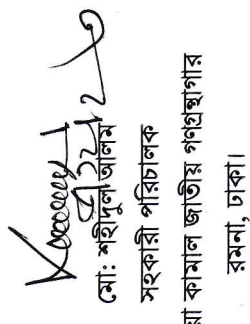 মো: শহীদুল আলম
সহকারী পরিচালক
কামাল জাতীয় গণগ্রন্থাগার
রমনা, ঢাকা।